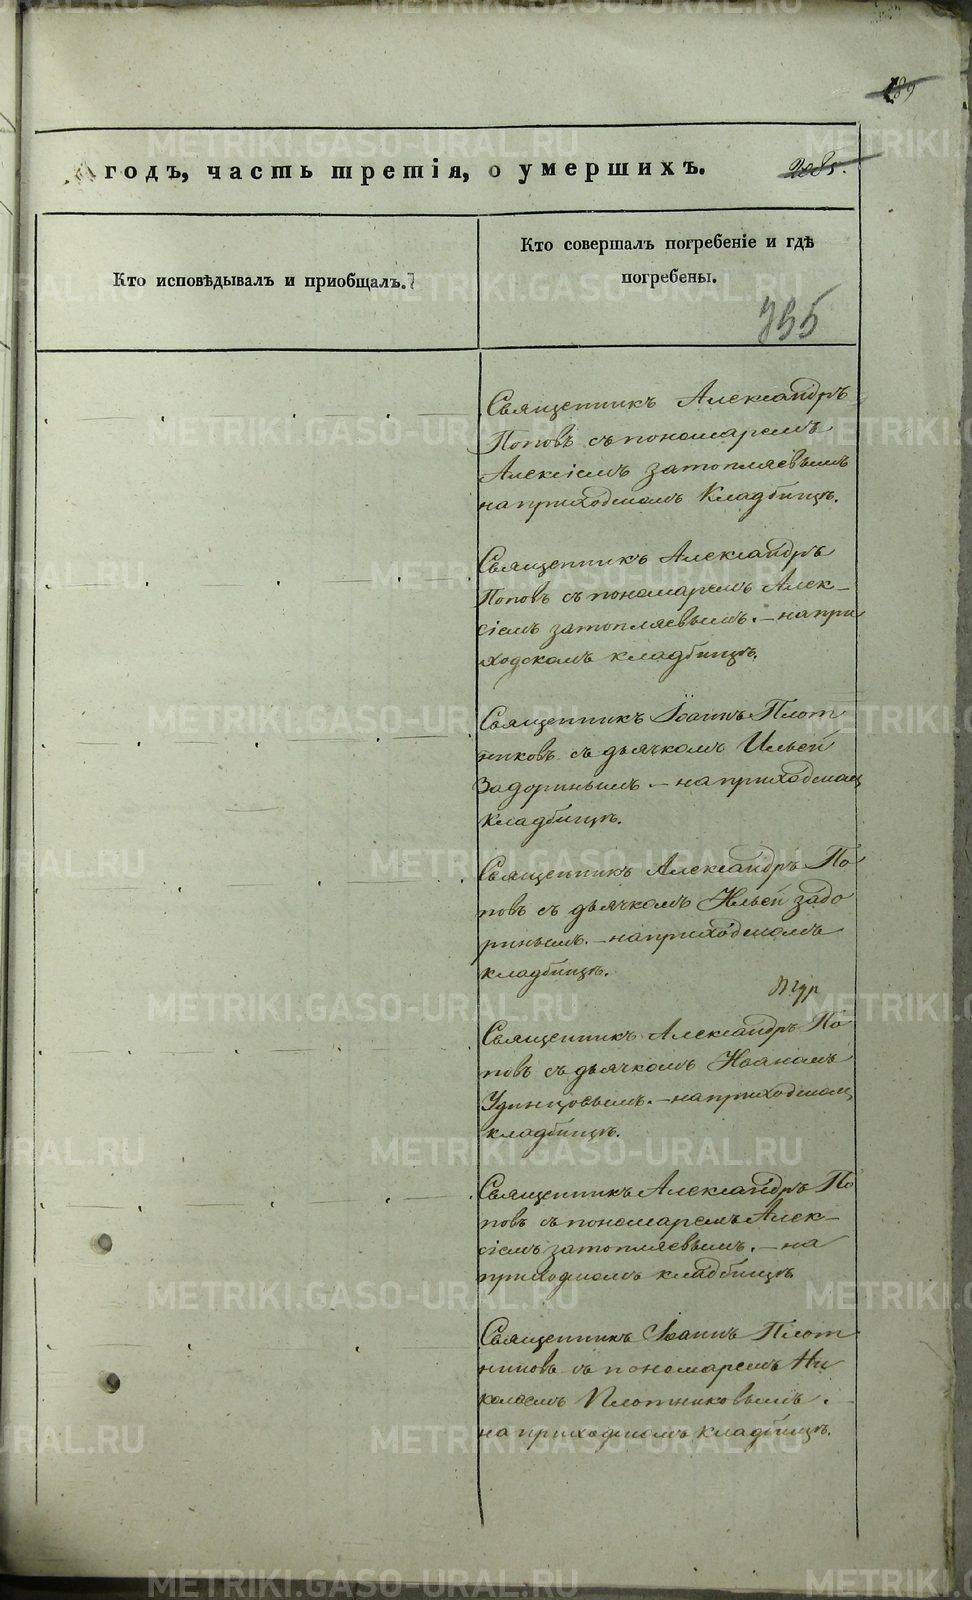 189
годъ, часть третія, о умершихъ.
2085.
Кто исповѣдывалъ и приобщалъ.
Кто совершалъ погребеніе и гдѣ
погребены.
755
Священникъ Александръ
Поповъ съ пономаремъ
Алексіемъ Затопляевымъ
на приходскомъ кладбищѣ.
Священникъ Александръ
Поповъ съ пономаремъ Алек-
сіемъ Затопляевымъ. – на при
ходскомъ кладбищѣ.
Священникъ Іоаннъ Плот
никовъ съ дьячкомъ Ильей
Задоринымъ. – на приходском
кладбищѣ.
Священникъ Александръ По
повъ съ дьячкомъ Ильей Задо
ринымъ. – на приходскомъ
кладбищѣ.
Священникъ Александръ По
повъ съ дьячкомъ Иваномъ
Удинцовымъ. – на приходском
кладбищѣ.
Священникъ Александръ По
повъ съ пономаремъ Алек-
сіемъ Затопляевымъ. – на
приходскомъ кладбищѣ
Священникъ Іоаннъ Плот
никовъ съ пономаремъ Ни
колаемъ Плотниковымъ. –
на приходскомъ кладбищѣ.
METRIKI.GASO-URAL.RU